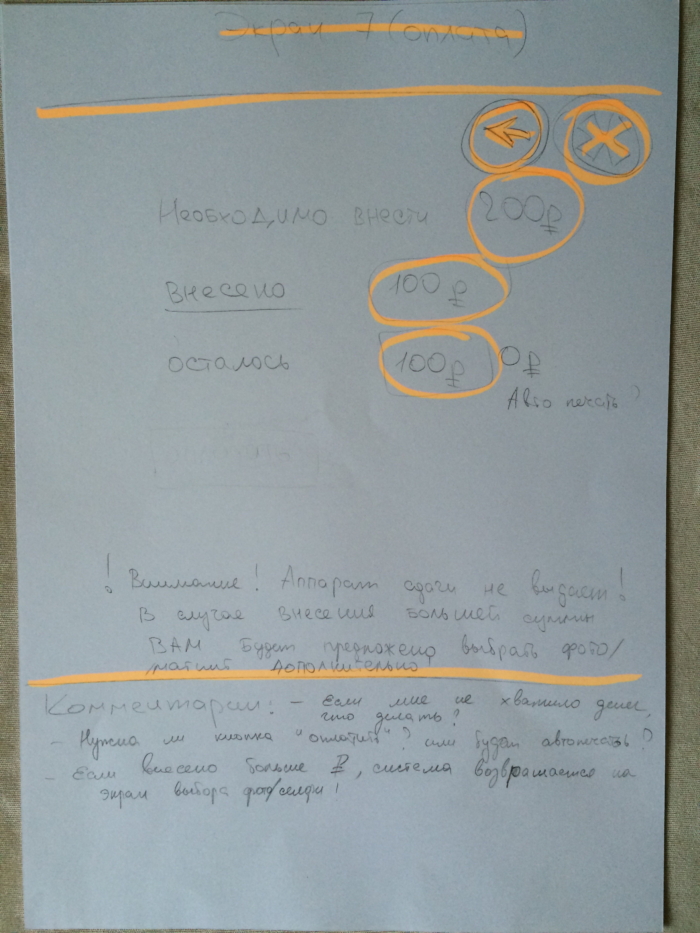 Экран 7 (оплата)
Необходимо внести 200₽
Внесено 100₽
осталось 100₽ 0₽
Авто печать?
! Внимание! Аппарат сдачи не выдает!
В случае внесения большей суммы
ВАМ будет предложено выбрать фото/
магнит дополнительно
Комментарии: - Если мне не хватило денег,
что делать?
- Нужна ли кнопка "оплатить"? или будет автопечать?
- Если внесено больше ₽, система возвращается на
экран выбора фото/селфи!